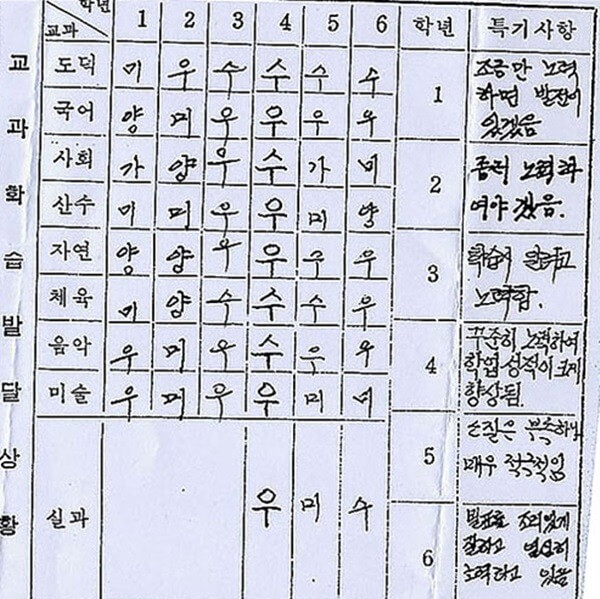 교과학습발달상황
학년
교과 1 2 3 4 5 6 학년 특기사항
도덕 미 우 수 수 수 수
국어 양 미 우 우 우 우
사회 가 양 우 수 가 미
산수 미 미 우 우 미 양
자연 양 양 우 우 우 우
체육 미 양 수 수 수 우
음악 우 미 우 수 우 우
미술 우 미 우 우 미 미
실과 우 미 수
1 조금만 노력
하면 발전이
있겠음
2 좀더 노력하
여야 겠음.
3 학습에
노력함.
4 꾸준히 노력하여
학업 성적이 크게
향상됨.
5 소질은 부족하나
매우 적극적임
6 발표를 조리있게
잘하고 열심히
노력하고 있음